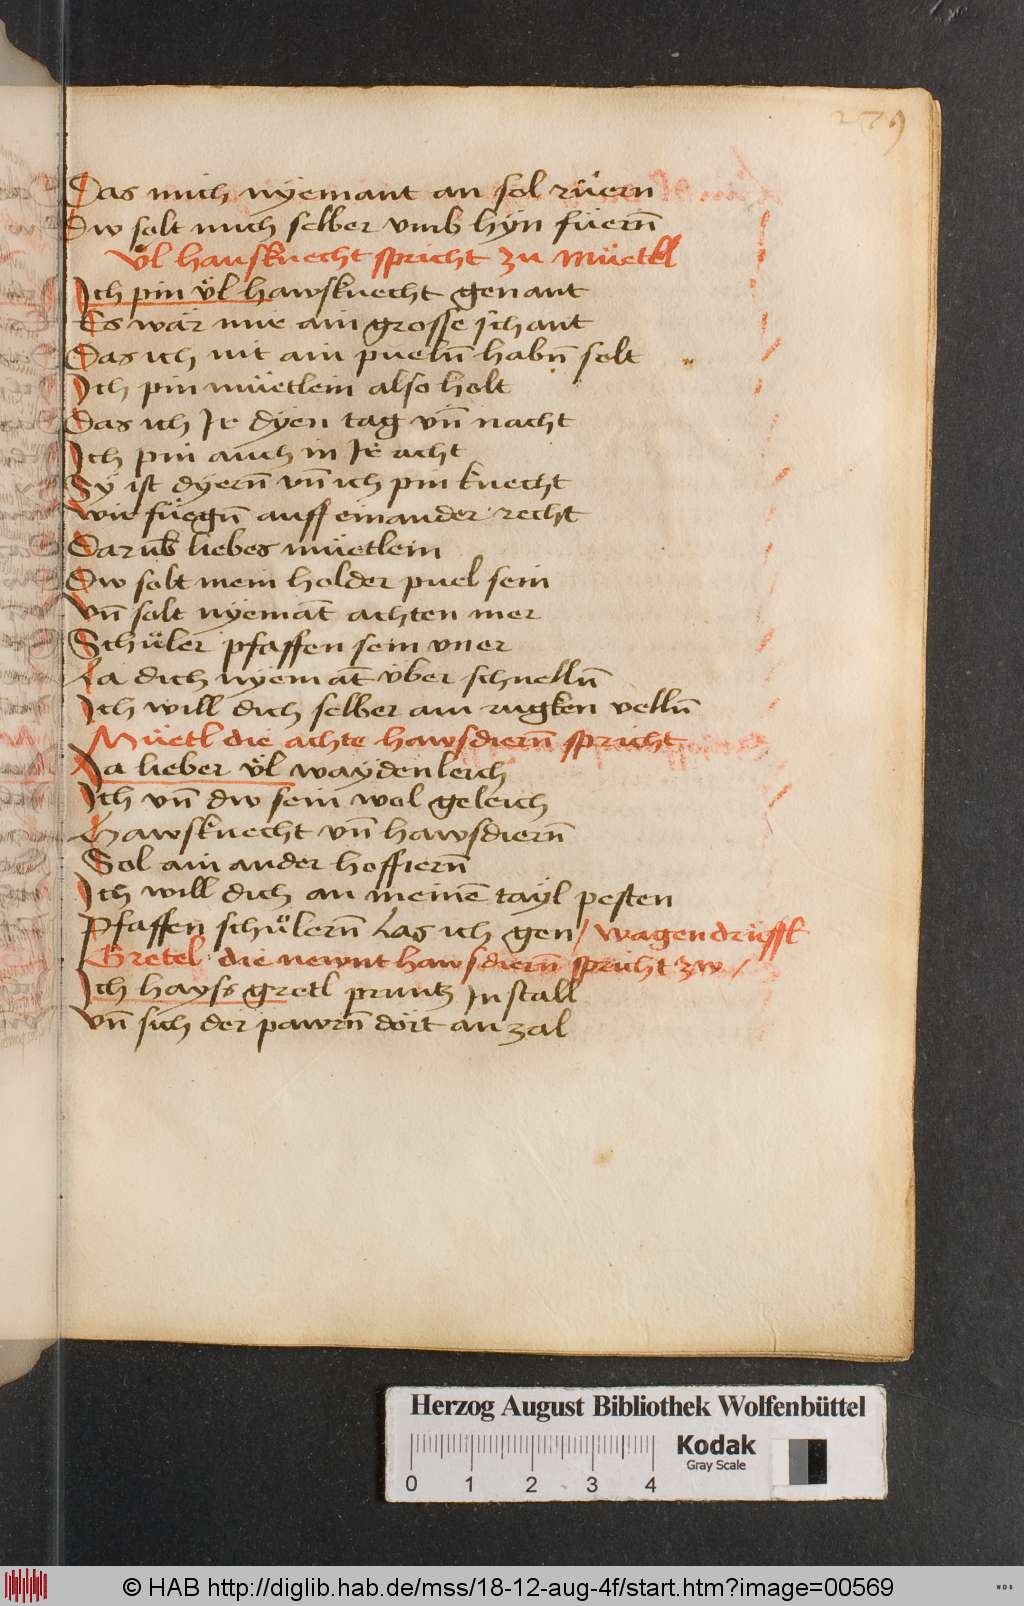 279
Das mich nyemant an sol rüern
Dw solt mich selber vmb hyn füern̄
Vͤl hausknecht spricht zu Müetel
Ich pin vͤl hawsknecht genant
Es wär mir ain grosse schant
Das ich nit ain pueln̄ habn̄ solt
Ich pin müetlein also holt
Das ich Ir dyen tag vn̄ nacht
Ich pin auch in Ir acht
Sy ist dyern̄ vn̄ ich pin knecht
wir füegn̄ auff einander recht
Darūb liebes müetlein
Dw solt mein holder puel sein
vn̄ solt nyemāt achten mer
Schüler pfaffen sein vner
La dich nyemāt über schnelln̄
Ich will dich selber am rugken velln̄
Müetl die achte hawsdiern̄ spricht
Ja lieber vͤl waydenleich
Ich vn̄ dw sein wol geleich
Hawsknecht vn̄ hawsdiern̄
Sol ain ander hoffiern̄
Ich will dich an meinē tayl pesten
Pfaffen schülern̄ Las ich gen / wagendrüssl
Gretel die newnt hawsdiern̄ spricht zw /
Ich hayss gretl pruntz In stall
vn̄ sich der pawrn̄ dort an zal
Herzog August Bibliothek Wolfenbüttel
Kodak
Gray Scale
0 1 2 3 4
© HAB http://diglib.hab.de/mss/18-12-aug-4f/start.htm?image=00569